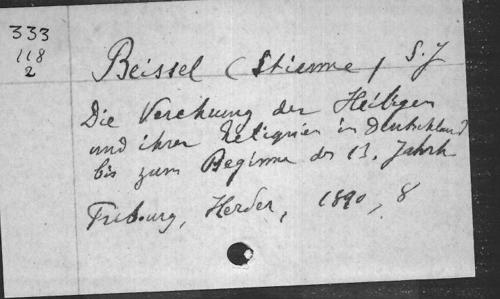 333
118
2
Beissel (Stienne) S.J
Die Verehrung der Heiligen
und ihrer Reliquien in Deutschland
bis zum Beginne des 13. Jahrh
Fribourg, Herder, 1890, 8